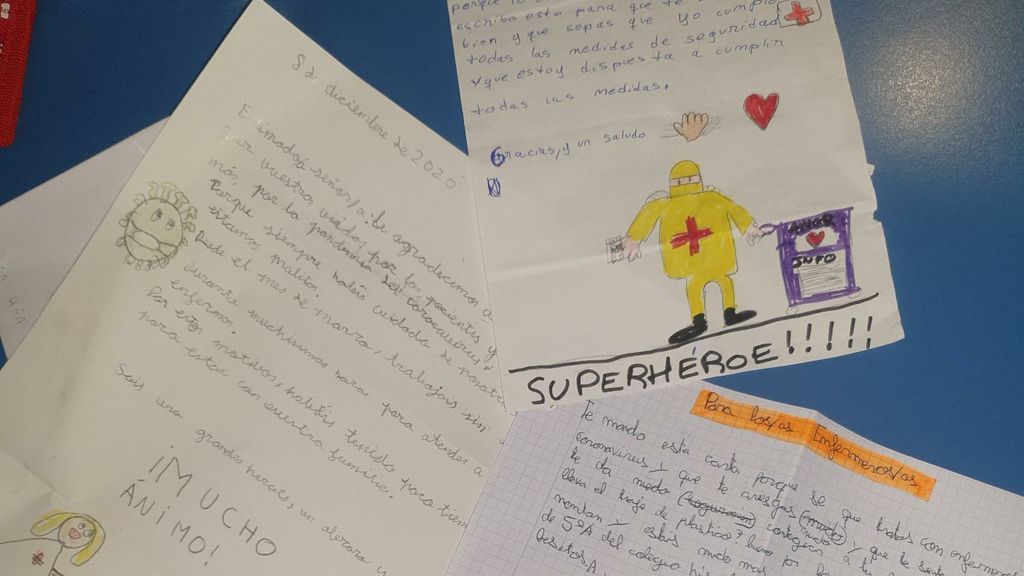 8 diciembre de 2020
Estimado/a señor/a: le agradecemos
por vuestra unidad, por los pacientes y
más, por la pandemia del coronavirus,
Porque siempre habéis cuidado de nosotros
estamos malitos.
Desde el mes de marzo, trabajáis sin
durante muchísimas horas para atender a
enfermos.
Por estos motivos, habéis tenido poco
para estar con vuestra familia.
Sois unos grandes héroes, un abrazo y
¡¡MUCHO
ÁNIMO!
escribo esto para que te
bien y que sepas que yo cumplo
todas las medidas de seguridad
y que estoy dispuesta a cumplir
todas las medidas.
Gracias, y un saludo
AMOR
INFO
SUPERHÉROE!!!!!
Para los/as Enfermeros/as
Te mando esta carta porque se que tratas con enfermos
coronavirus y que te arriesgas contagien y que te
te da miedo
lleva el traje de plastico?
montan, y estas mucho mas
de 5ºA del colegio
besitos